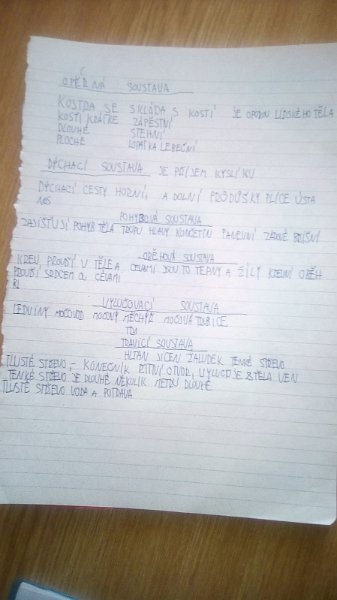 OPĚRNÁ SOUSTAVA
KOSTRA SE SKLÁDÁ S KOSTÍ JE OPOROU LIDSKÉHO TĚLA
KOSTI KRÁTKÉ ZÁPĚSTNÍ
DLOUHÉ STEHNÍ
PLOCHÉ LOPATKA LEBEČNÍ
DÝCHACÍ SOUSTAVA JE PŘÍJEM KYSLÍKU
DÝCHACÍ CESTY HORNÍ, A DOLNÍ PRŮDUŠKY PLÍCE ÚSTA
NOS
POHYBOVÁ SOUSTAVA
POHYB TĚLA TRUPU HLAVY KONČETIN ZÁDOVÉ BŘIŠNÍ
OBĚHOVÁ SOUSTAVA
KREV PROUDÍ V TĚLE A CÉVAMI JSOU TO TEPNY A ŽÍLY KREVNÍ OBĚH
PROUDÍ SRDCEM A CÉVAMI
VYLUČOVACÍ SOUSTAVA
LEDVINY MOČOVOD MOČOVÝ MĚCHÝŘ MOČOVÁ TRUBICE
TRÁVICÍ SOUSTAVA
HLTAN JÍCEN ŽALUDEK TENKÉ STŘEVO
TLUSTÉ STŘEVO, KONEČNÍK ŘITNÍ OTVOR, VYLUČUJE Z TĚLA VEN
TENKÉ STŘEVO JE DLOUHÉ NĚKOLIK METRŮ DLOUHÉ
TLUSTÉ STŘEVO VODA A POTRAVA